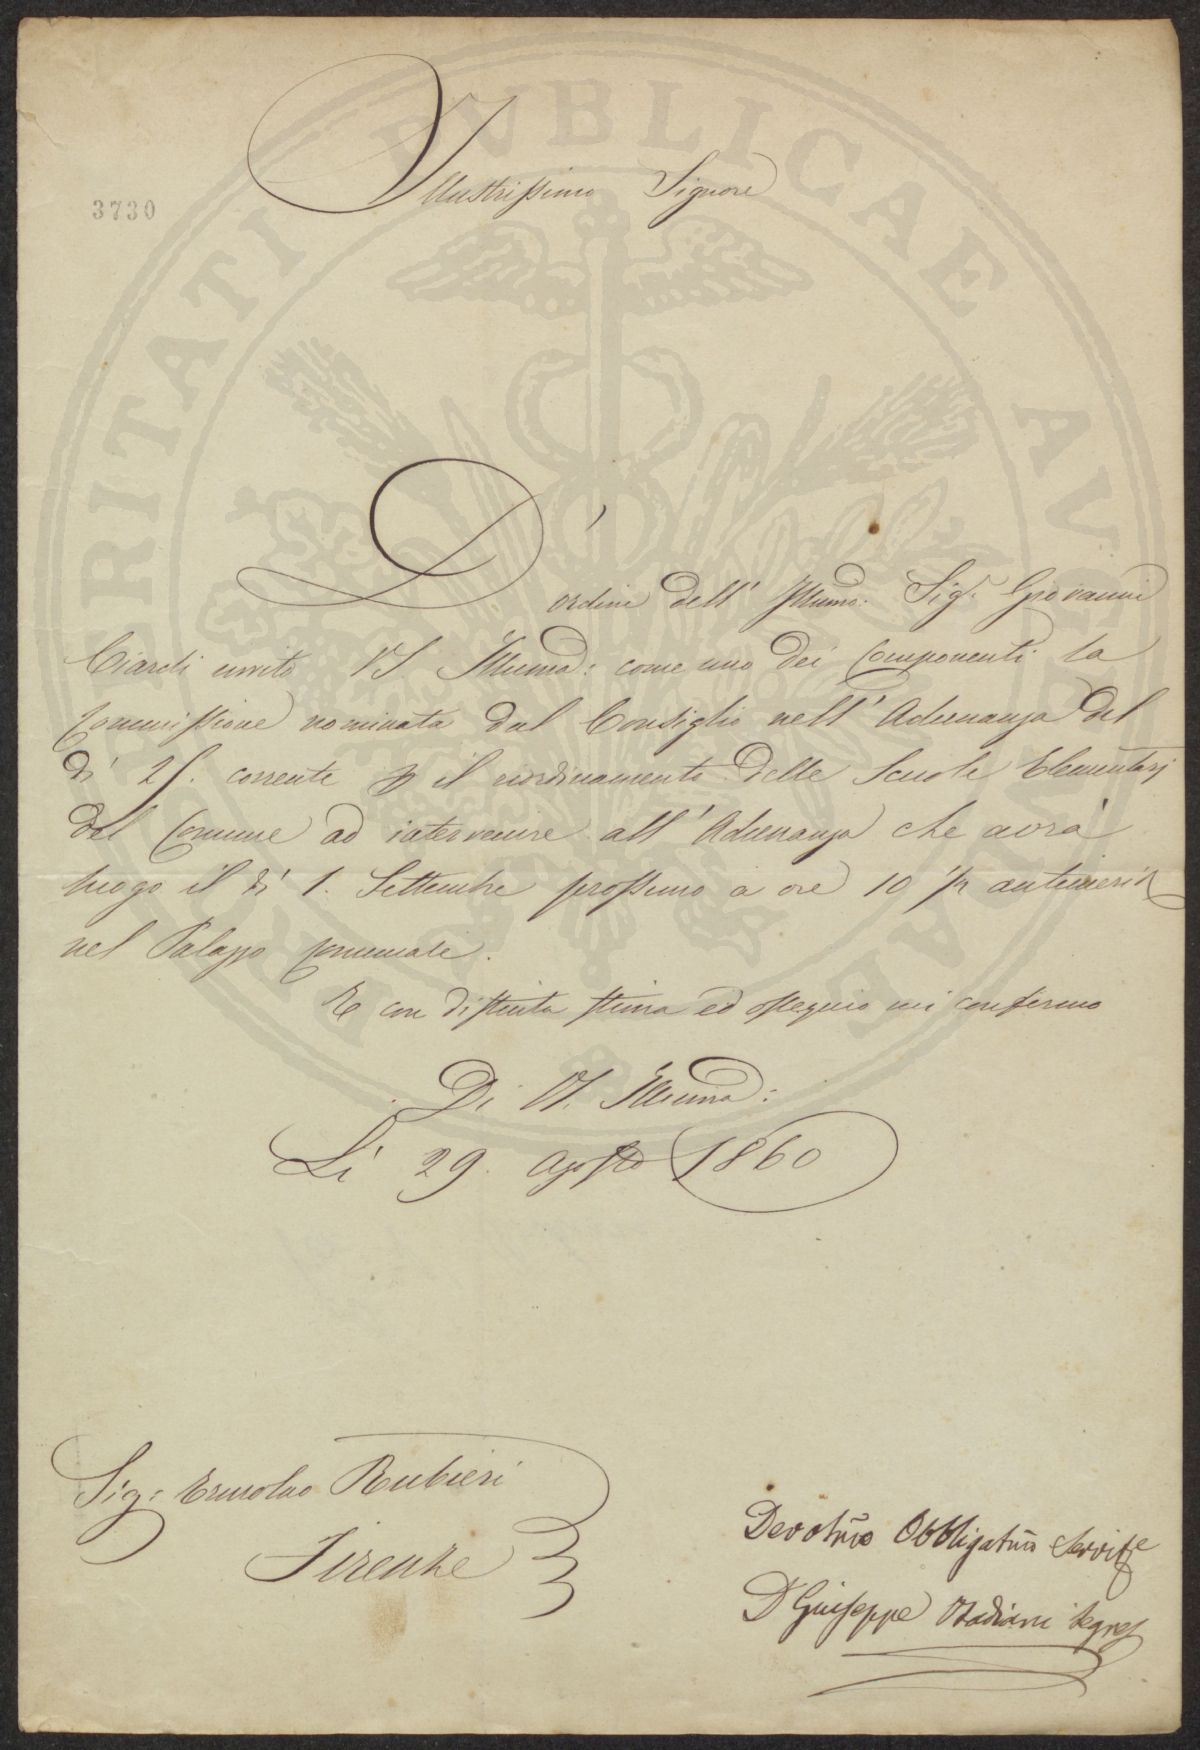 3730
Illustrissimo Signore
D'
ordine dell' Illumo: Sigr. Giovanni
Ciardi invito VS. Illuma: come uno dei Componenti la
Commissione nominata dal Consiglio nell' Adunanza del
dì 25. corrente p il riordinamento delle Scuole Elementari
del Comune ad intervenire all' Adunanza che avrà
luogo il dì 1. Settembre prossimo a ore 10 ½ antimerid
nel Palazzo Comunale.
E con distinta stima ed ossequio mi confermo
Di VS. Illuma:
Li 29. Agosto 1860
Sig: Ermolao Rubieri
Firenze
Devotmo Obbligatmo Servitre
D Giuseppe Segret
PVBLICAE